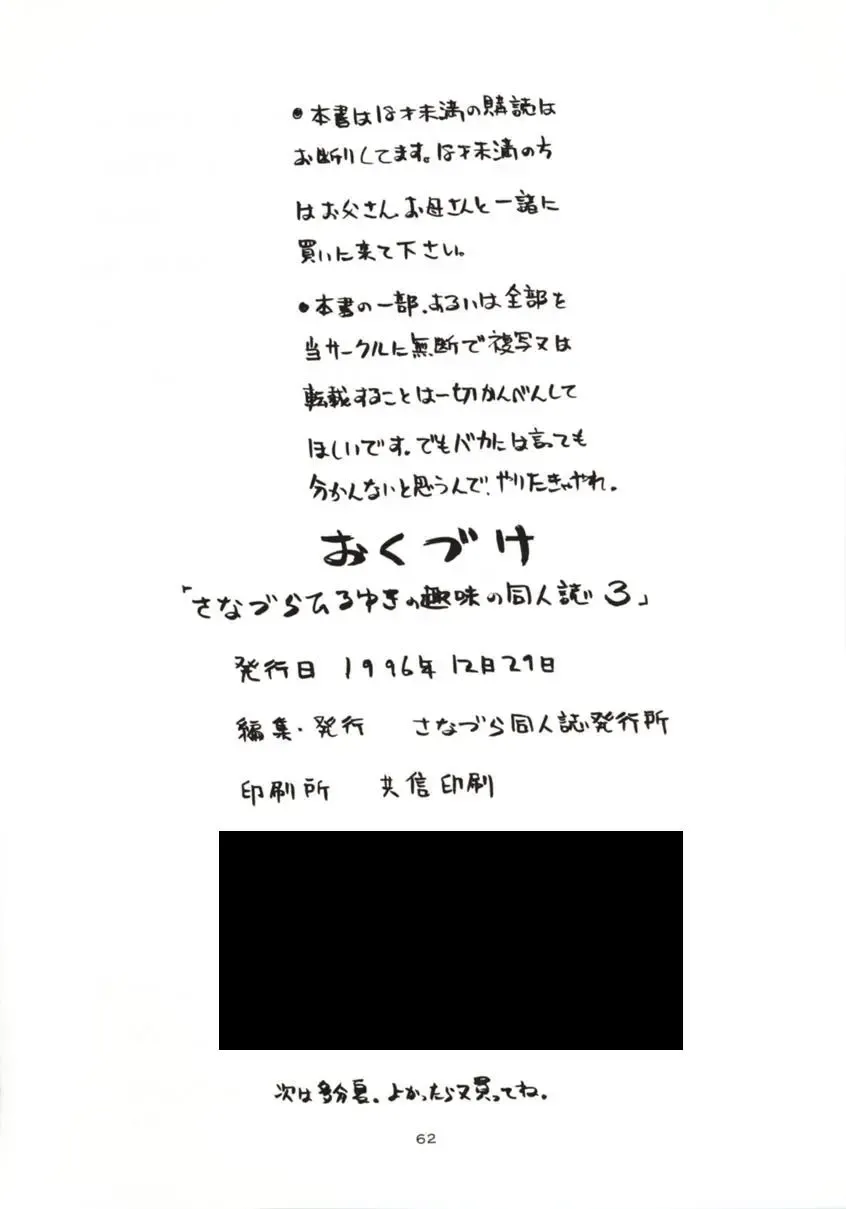 ●本書は18才未満の購読は
お断りしてます。18才未満の方
はお父さん、お母さんと一諸に
買いに来て下さい。
●本書の一部、あるいは全部を
当サークルに無断で複写又は
転載することは一切かんべんして
ほしいです。でもバカには言っても
分かんないと思うんで、やりたきゃやれ。
おくづけ
「さなづらひろゆきの趣味の同人誌3」
発行日 1996年12月29日
編集・発行 さなづら同人誌発行所
印刷所 共信印刷
次は多分夏。よかったら又買ってね。
62